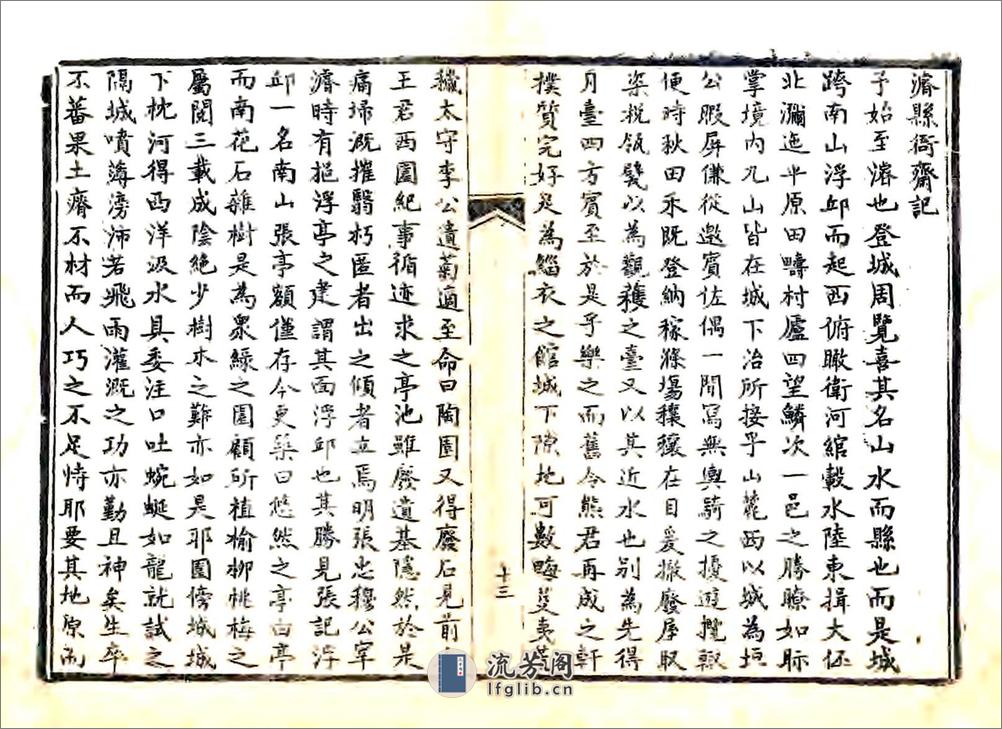 濬縣衙齋記
予始至濬也登城周覽喜其名山水而縣也而是城
跨南山浮邱而起西俯瞰衛河綰轂水陸東揖大伾
北瀰迤平原田疇村廬四望鱗次一邑之勝瞭如眎
掌境內九山皆在城下治所接乎山麓西以城為垣
公暇屏傔從邀賓佐偶一閒寫無輿騎之擾遊攬輙
便時秋田禾既登納稼滌場穰穰在目爰撤廢屋取
梁梲瓴甓以為觀穫之臺又以其近水也別為先得
月臺四方賓至於是乎樂之而舊令熊君再成之軒
樸質完好足為緇衣之館城下隙地可數畮芟夷蕪
穢太守李公遺菊適至命曰陶園又得廢石見前令
王君西園紀事循迹求之亭池雖廢遺基隱然於是
痛埽溉摧翳朽匿者出之傾者立焉明張忠穆公宰
濬時有挹浮亭之建謂其面浮邱也其勝見張記浮
邱一名南山張亭額僅存今更築曰悠然之亭由亭
而南花石雜樹是為衆綠之園顧所植榆柳桃梅之
屬閱三載成陰絕少樹木之難亦如是耶園傍城城
下枕河得西洋汲水具委注口吐蜿蜒如龍就試之
隔城噴薄滂沛若飛雨灌溉之功亦勤且神矣生卒
不蕃果土瘠不材而人巧之不足恃耶要其地原而
十三
流芳阁
lfglib.cn